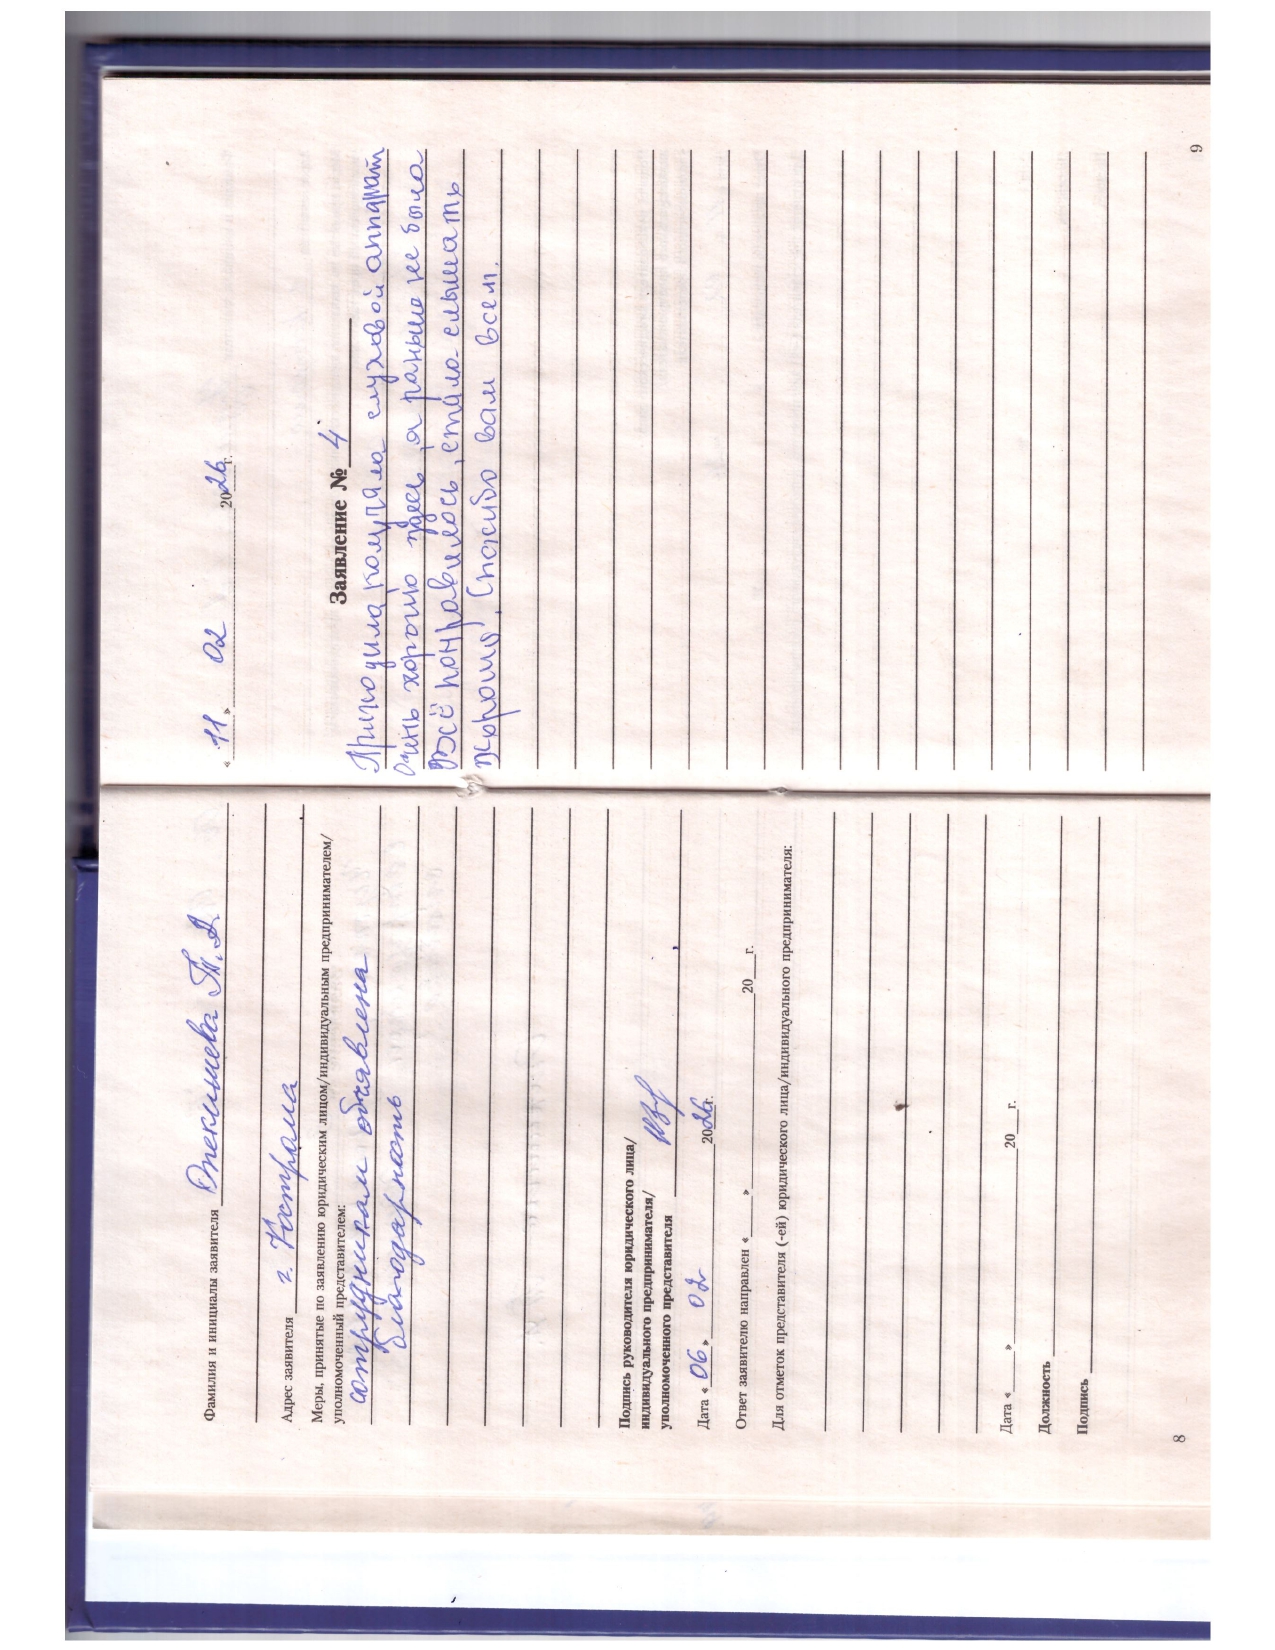 Фамилия и инициалы заявителя Опекишева Т.А.
Адрес заявителя г. Кострома
Меры, принятые по заявлению юридическим лицом/индивидуальным предпринимателем/
уполномоченный представителем:
сотрудникам объявлена
благодарность
Подпись руководителя юридического лица/
индивидуального предпринимателя/
уполномоченного представителя
Дата « 06 » 02 2026г.
Ответ заявителю направлен « » 20 г.
Для отметок представителя (-ей) юридического лица/индивидуального предпринимателя:
Дата « » 20 г.
Должность
Подпись
8
« 11 » 02 2026г.
Заявление № 4
Приходила получала слуховой аппарат
Очень хорошо здесь, я раньше не была
Всё понравилось, стала слышать
Хорошо. Спасибо вам всем.
9